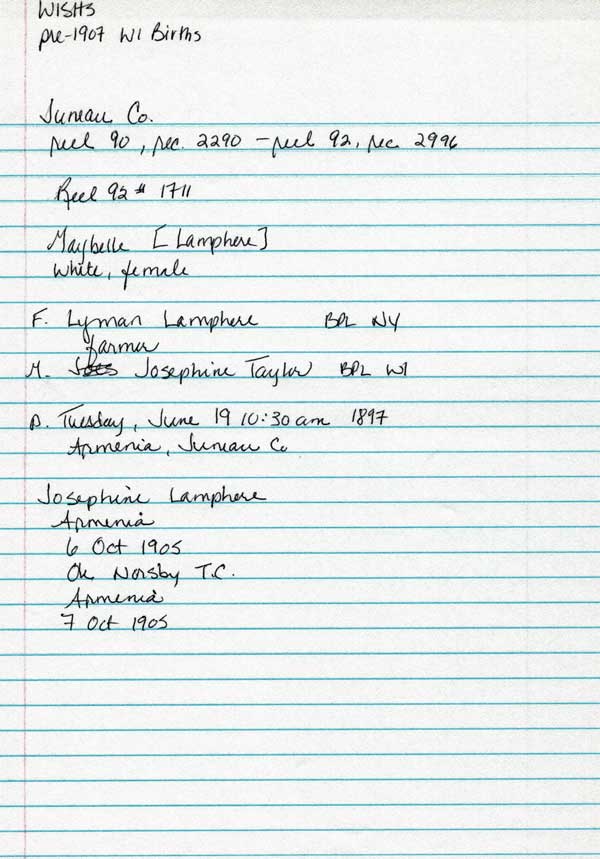 WISHS
pre-1907 WI Births
Juneau Co.
reel 90, rec. 2290 - reel 92, rec 2996
Reel 92 # 1711
Maybelle [Lamphere]
White, female
F. Lyman Lamphere BPL NY
farmer
M. Josephine Taylor BPL WI
D. Tuesday, June 19 10:30 am 1897
Armenia, Juneau Co
Josephine Lamphere
Armenia
6 Oct 1905
Norsby T.C.
Armenia
7 Oct 1905